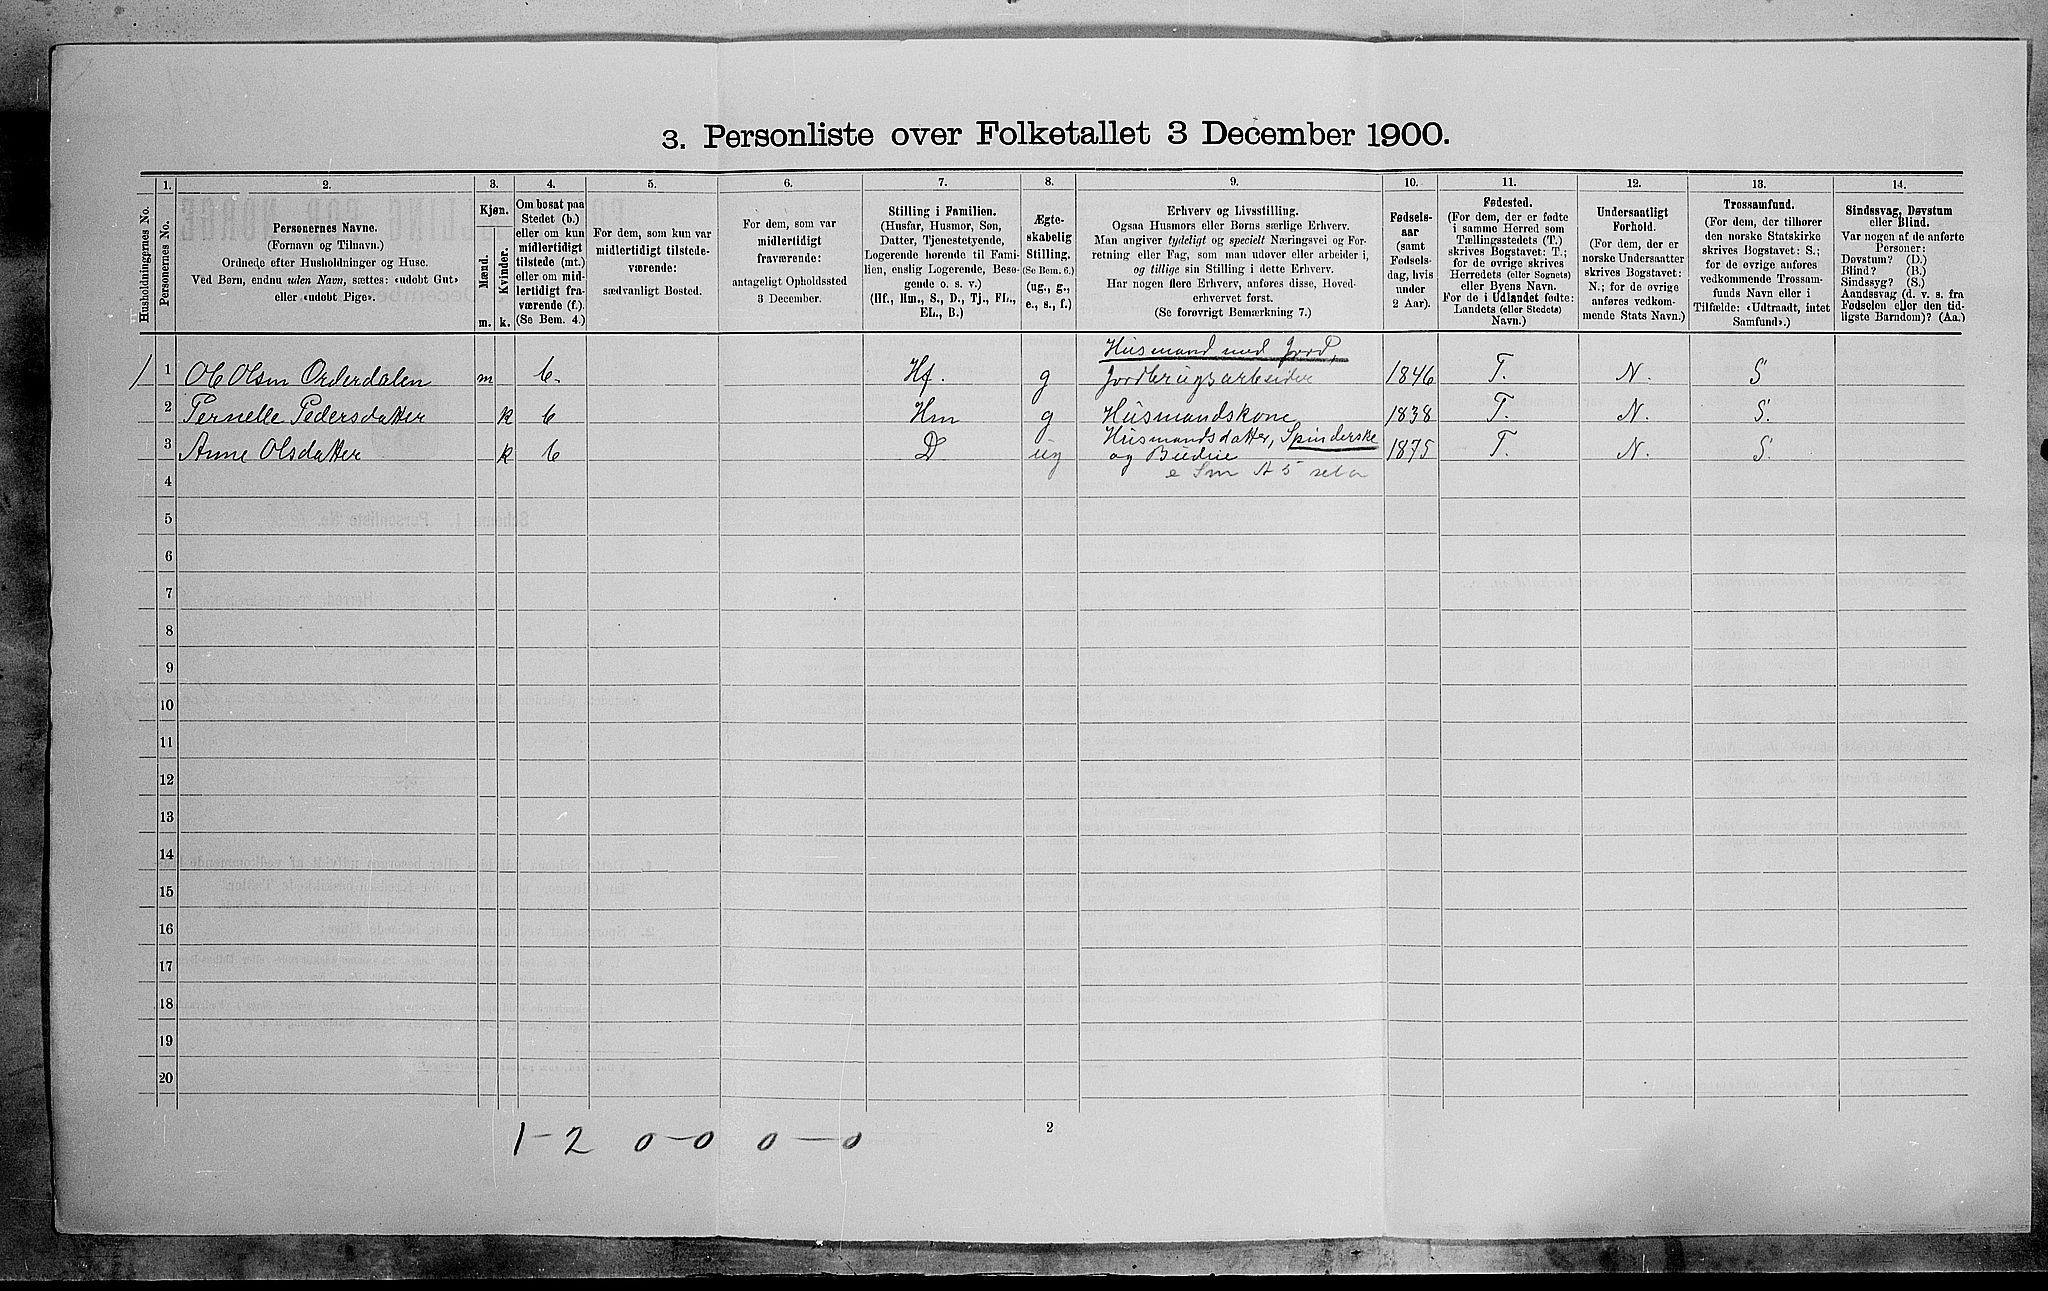 3. Personliste over Folketallet 3 December 1900.
Husholdningernes No.
1.
Personernes No.
2.
Personernes Navne.
(Fornavn og Tilnavn.)
Ordnede efter Husholdninger og Huse.
Ved Børn, endnu uden Navn, sættes: «udøbt Gut»
eller «udøbt Pige».
3.
Kjøn.
Mænd.
Kvinder.
m.
k.
4.
Om bosat paa
Stedet (b.)
eller om kun
midlertidigt
tilstede (mt.)
eller om mid-
lertidigt fra-
værende (f.).
(Se Bem. 4.)
5.
For dem, som kun var
midlertidigt tilstede-
værende:
sædvanligt Bosted.
6.
For dem, som var
midlertidigt
fraværende:
antageligt Opholdssted
3 December.
7.
Stilling i Familien.
(Husfar, Husmor, Søn,
Datter, Tjenestetyende,
Logerende hørende til Fami-
lien, enslig Logerende, Besø-
gende o. s. v.)
(Hf., Hm., S., D., Tj., FL.,
EL., B.)
8.
Ægte-
skabelig
Stilling.
(Se Bem. 6.)
(ug., g.,
e., s., f.)
9.
Erhverv og Livsstilling.
Ogsaa Husmors eller Børns særlige Erhverv.
Man angiver tydeligt og specielt Næringsvei og For-
retning eller Fag, som man udøver eller arbeider i,
og tillige sin Stilling i dette Erhverv.
Har nogen flere Erhverv, anføres disse, Hoved-
erhvervet først.
(Se forøvrigt Bemærkning 7.)
10.
Fødsels-
aar
(samt
Fødsels-
dag, hvis
under
2 Aar).
11.
Fødested.
(For dem, der er fødte
i samme Herred som
Tællingsstedets (T.)
skrives Bogstavet: T.;
for de øvrige skrives
Herredets (eller Sognets)
eller Byens Navn.
For de i Udlandet fødte:
Landets (eller Stedets)
Navn.)
12.
Undersaatligt
Forhold.
(For dem, der er
norske Undersaatter
skrives Bogstavet:
N.; for de øvrige
anføres vedkom-
mende Stats Navn.)
13.
Trossamfund.
(For dem, der tilhører
den norske Statskirke
skrives Bogstavet: S.;
for de øvrige anføres
vedkommende Trossam-
funds Navn eller i
Tilfælde: «Udtraadt, intet
Samfund».)
14.
Sindssvag, Døvstum
eller Blind.
Var nogen af de anførte
Personer:
Døvstum? (D.)
Blind? (B.)
Sindssyg? (S.)
Aandssvag (d. v. s. fra
Fødselen eller den tid-
ligste Barndom)? (Aa.)
Husmand med Jord,
1 1 Ole Olsen Orderdalen m b. Hf. g Jordbrugsarbeider 1846 T. N. S
2 Pernelle Pedersdatter k b Hm g Husmandskone 1838 T. N. S.
Husmandsdatter, Spinderske
3 Anne Olsdatter k b D ug og Budeie 1875 T. N. S.
4
5
6
7
8
9
10
11
12
13
14
15
16
17
18
19
20
1-2 0-0 0-0
2